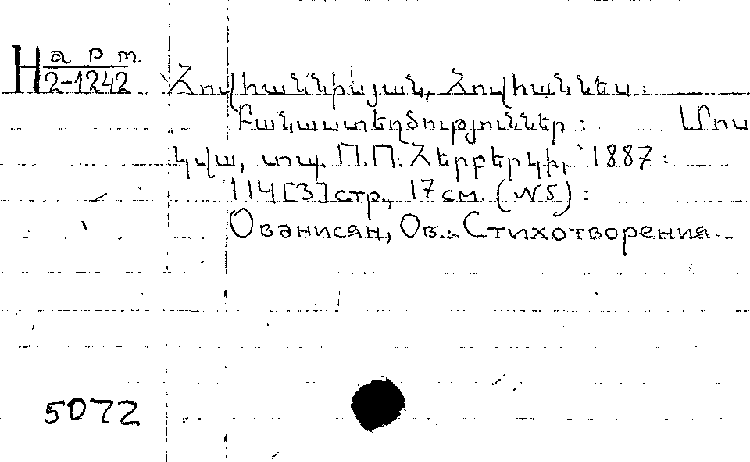 H арт
2-1242
Հովհաննիսյան, Հովհաննես։
Բանաստեղծություններ։ Մոս
կվա, տպ. П.П. Հերբեկի, 1887։
114[3]стр., 17см. (№5)։
Ованисян, Ов.. Стихотворения.
5072